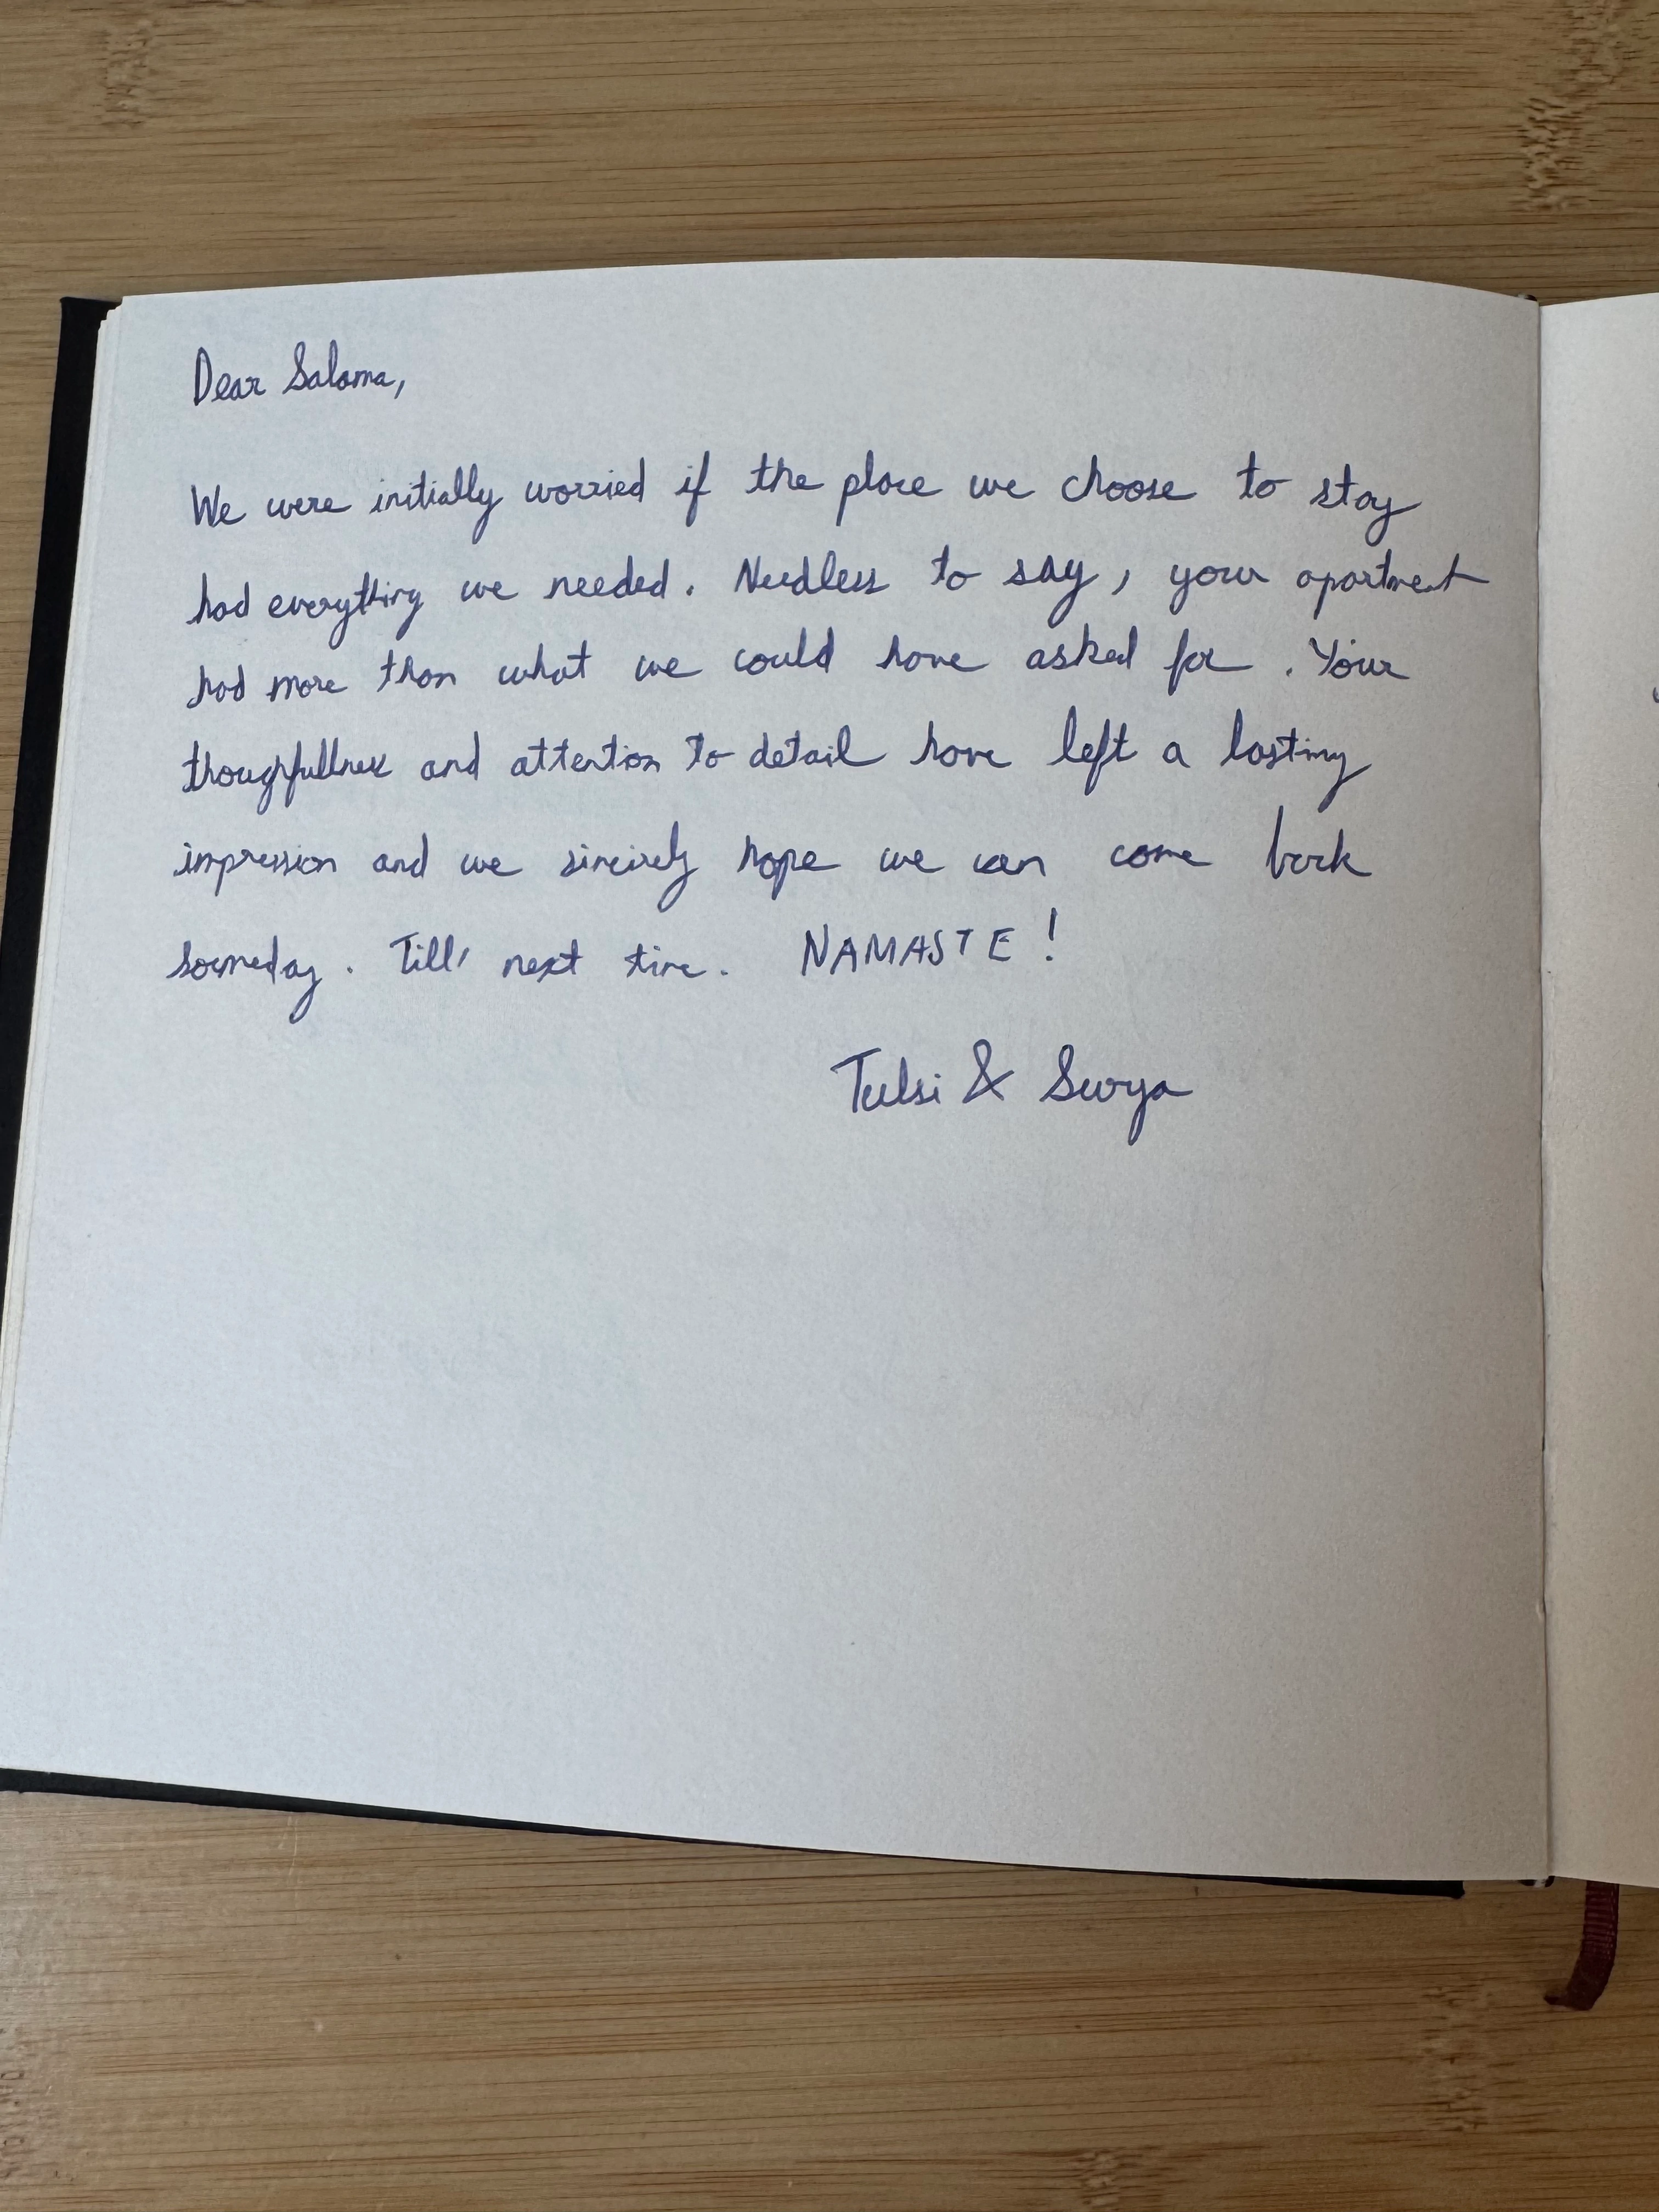 Dear Saloma,
We were initially worried if the place we choose to stay
had everything we needed. Needless to say, your apartment
had more than what we could have asked for. Your
thougfullness and attention to detail have left a lasting
impression and we sincirely hope we can come back
someday. Till' next time. NAMASTE!
Tulsi & Surya